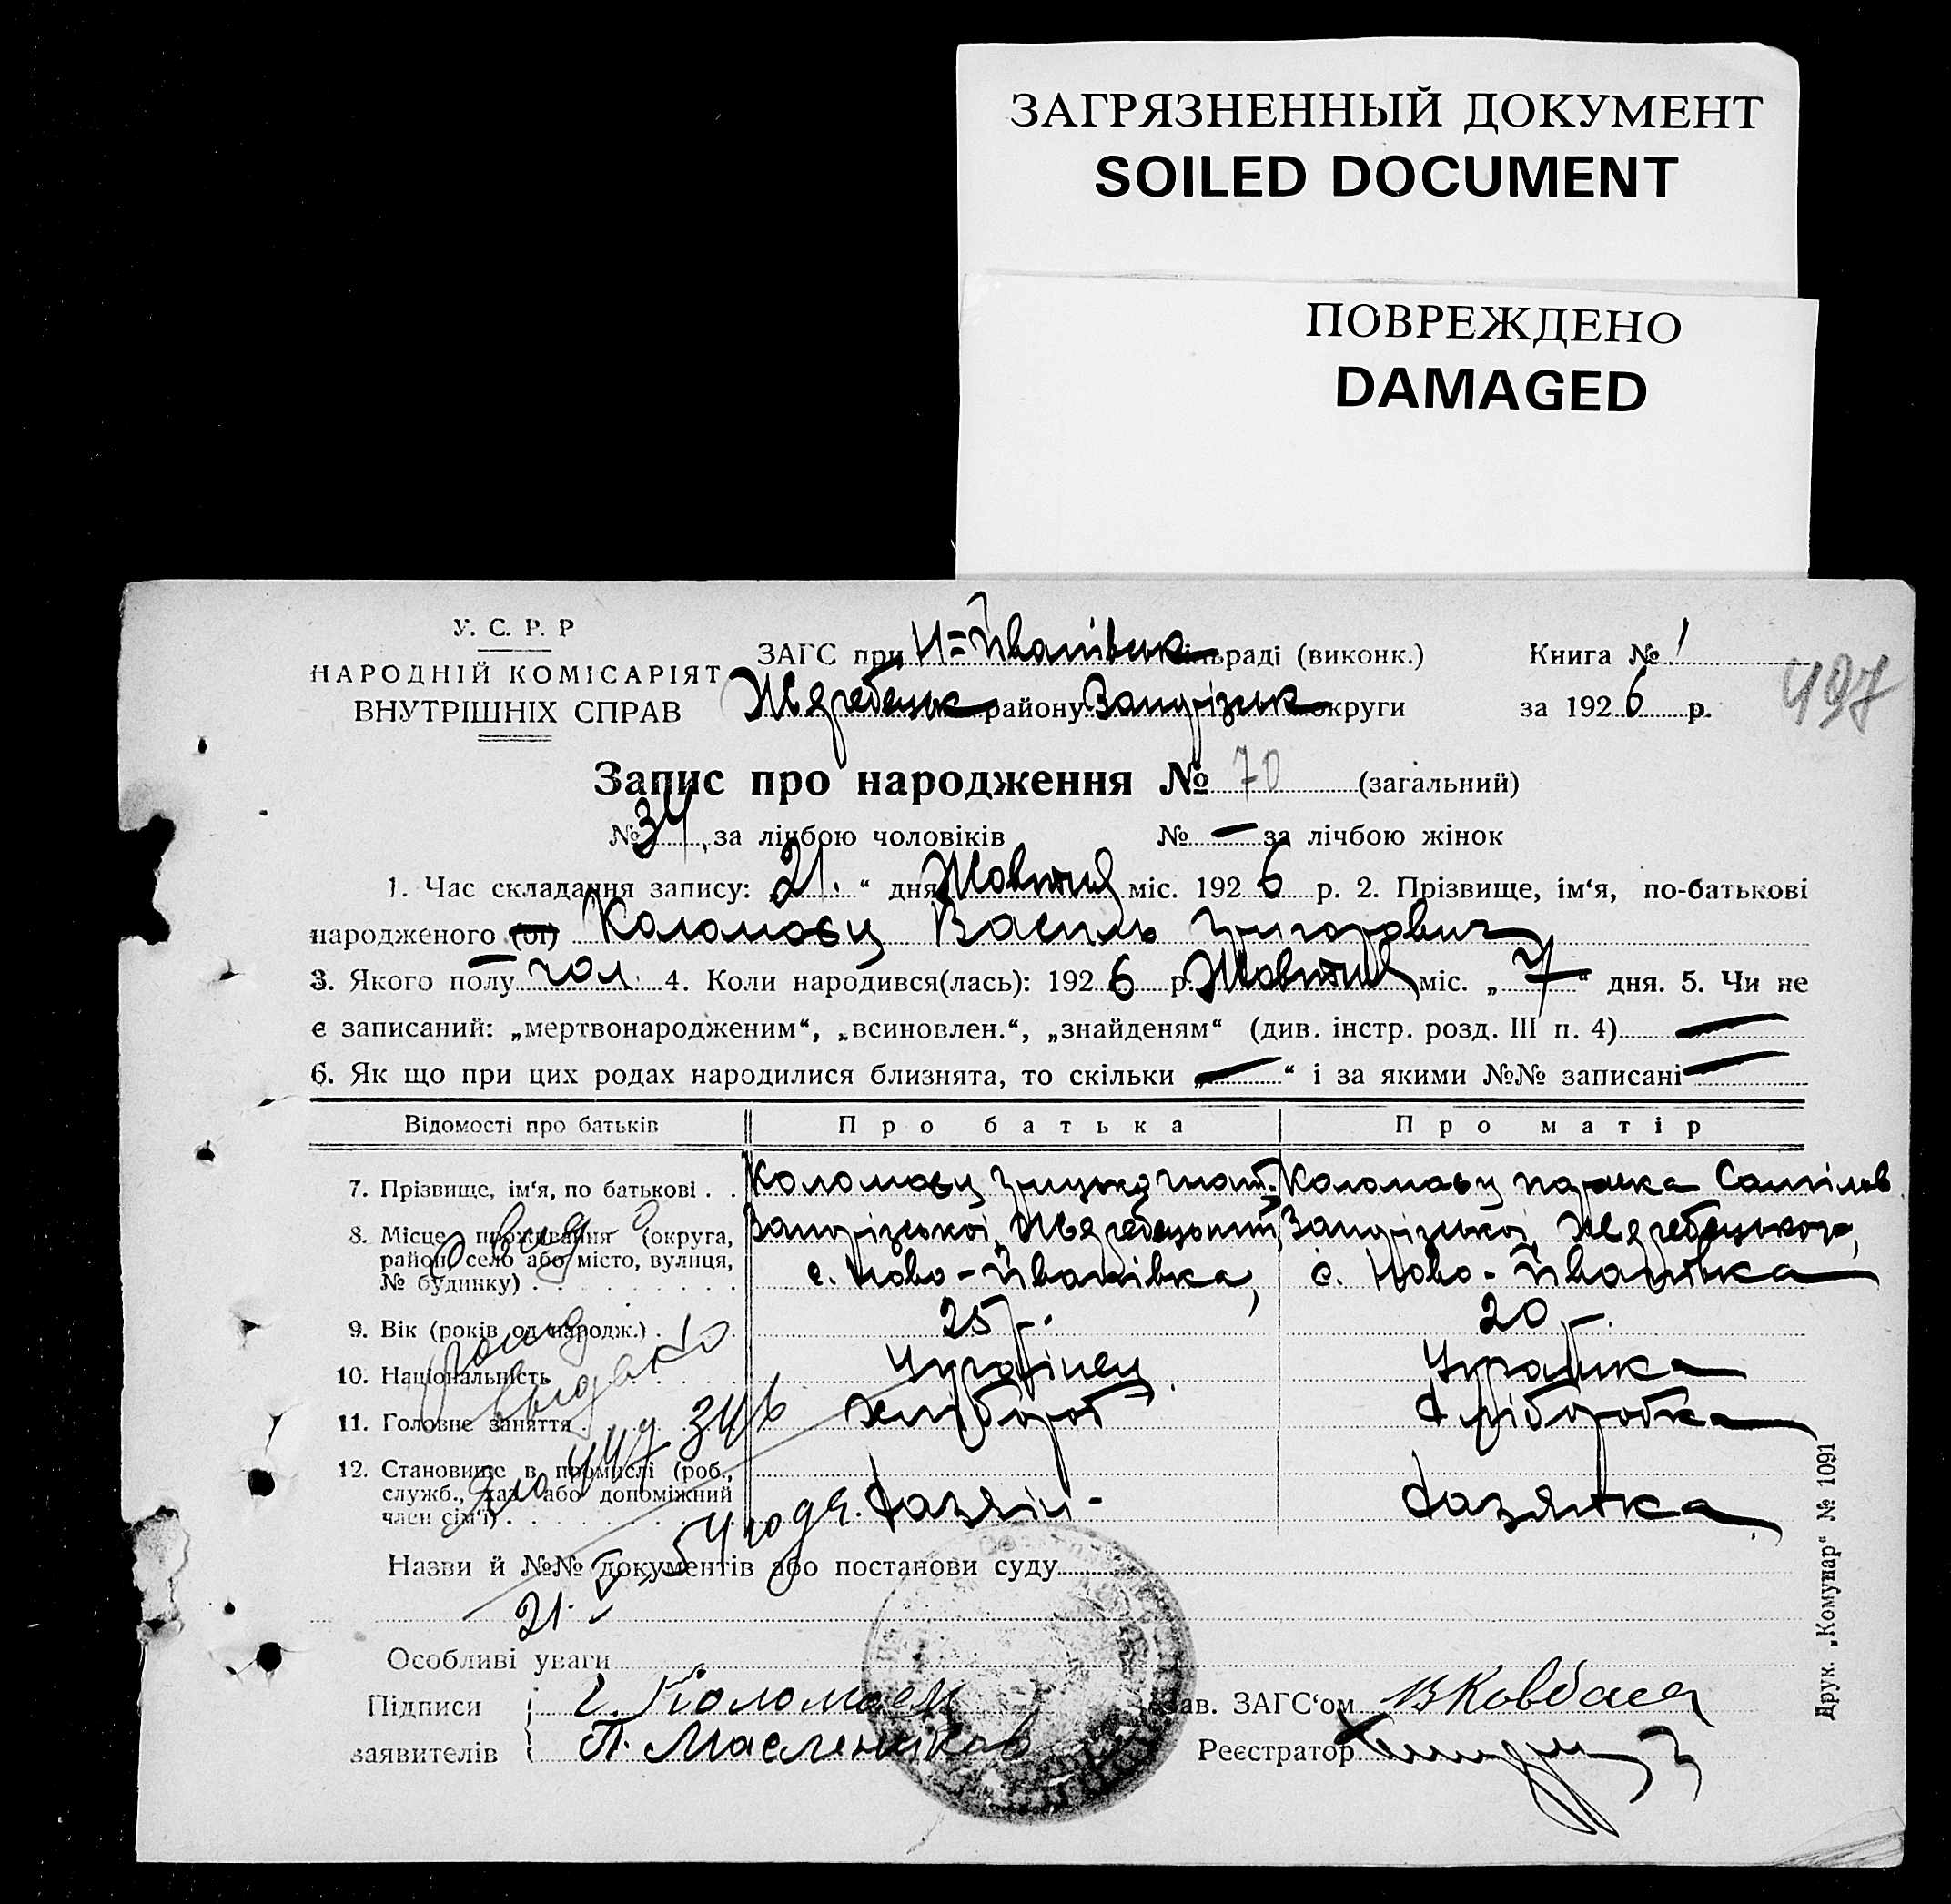 ЗАГРЯЗНЕННЫЙ ДОКУМЕНТ
SOILED DOCUMENT
ПОВРЕЖДЕНО
DAMAGED
У. С. Р. Р
НАРОДНІЙ КОМІСАРІЯТ
ВНУТРІШНІХ СПРАВ
ЗАГС при Н=Йванівськ сільраді (виконк.)
Жеребецьк району Запорізьк округи
Книга № 1
за 1926 р.
497
Запис про народження № 70 (загальний)
№ 34, за лічбою чоловіків № — за лічбою жінок
1. Час складання запису: „21“ дня Жовтня міс. 1926 р. 2. Прізвище, ім‘я, по-батькові
народженого (ої) Коломоєц Василь Григорович
3. Якого полу чол. 4. Коли народився(лась): 1926 р. Жовтня міс. „7“ дня. 5. Чи не
є записаний: „мертвонародженим“, „всиновлен.“, „знайденям“ (див. інстр. розд. III п. 4) —
6. Як що при цих родах народилися близнята, то скільки „—“ і за якими №№ записані —
Відомості про батьків Про батька Про матір
7. Прізвище, ім‘я, по батькові . . Коломоєц Грицько Коломоєц Параска
8. Місце проживання (округа, Запорізької, Жеребецький Запорізької, Жеребецького,
район, село або місто, вулиця, с. Ново-Йванівка, с. Ново-Йванівка
№ будинку)
9. Вік (років од народж.) . 25 р. 20 р.
10. Національність Українец Українка
11. Головне заняття Хлібороб Хліборобка
12. Становище в промислі (роб.,
служб., хаз. або допоміжний
член сім‘ї) . Хазяїн Хазяйка
349
Назви й №№ документів або постанови суду
21. V 54 года.
Особливі уваги
Підписи Г. Коломоец Зав. ЗАГС‘ом В Ковбаса
заявителів П. Масленников Реєстратор
Друк. „Комунар“ № 1091